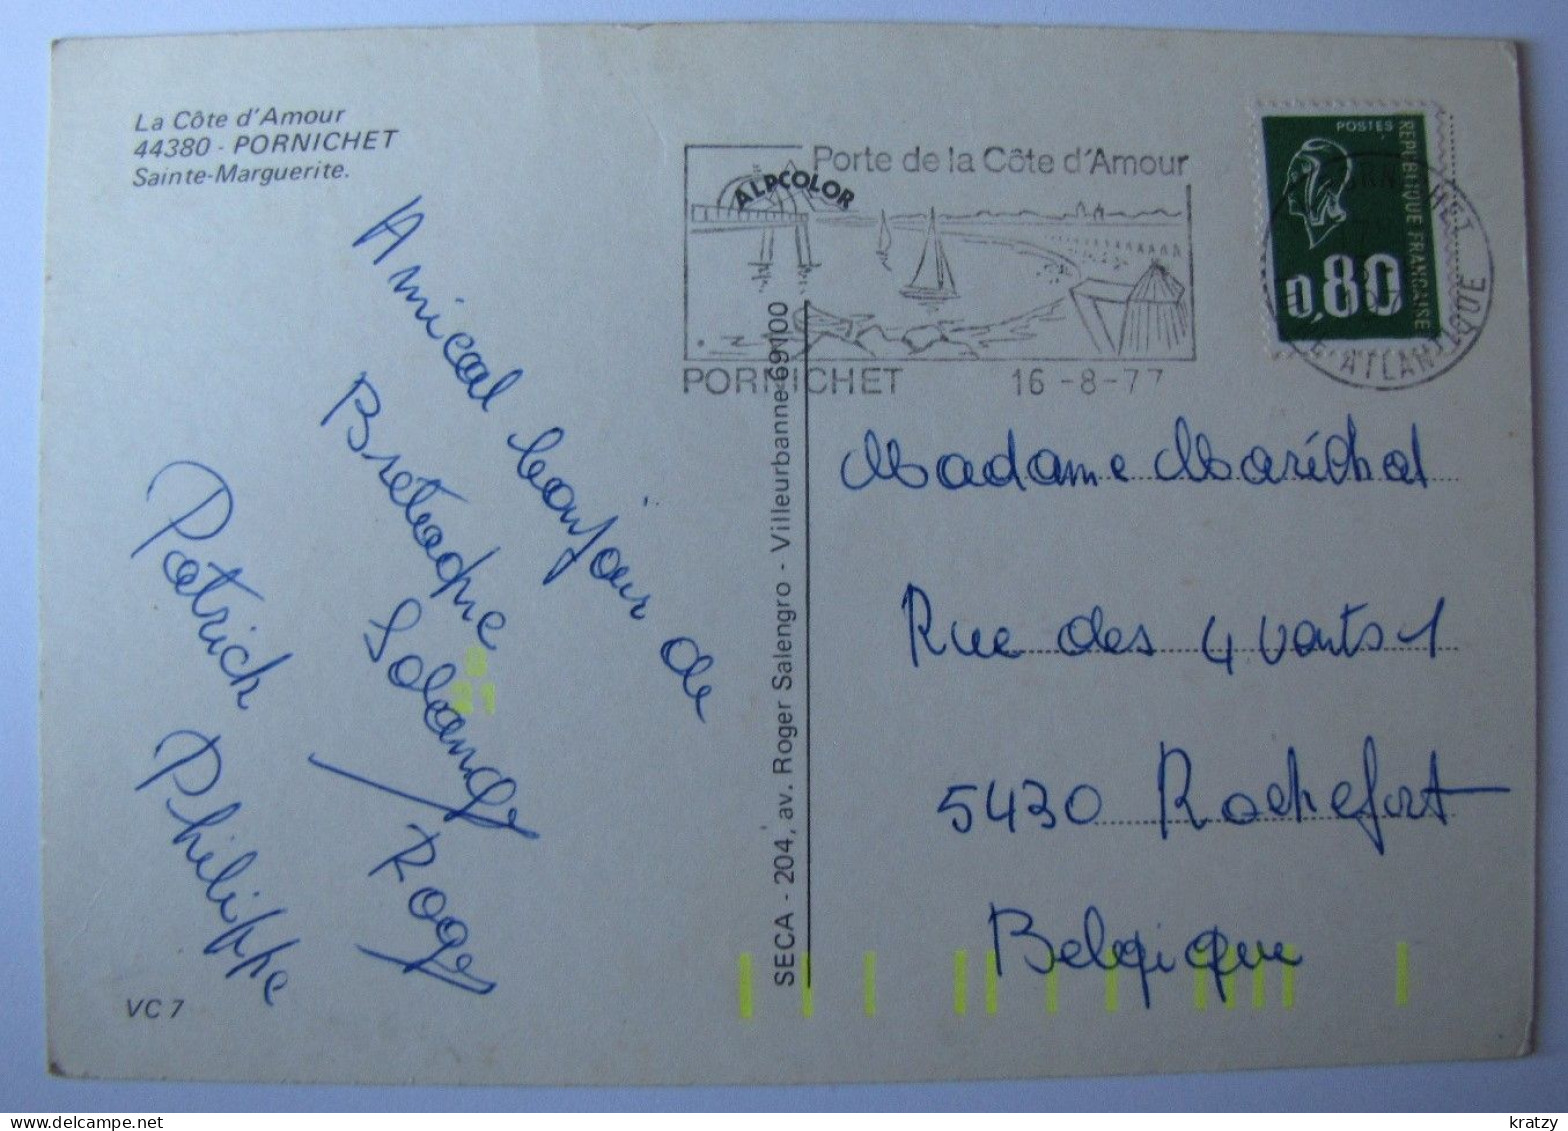 La Côte d'Amour
44380 - PORNICHET
Sainte-Marguerite.
Amical bonjour de
Bretagne
Solange
Roger
Patrick
Philippe
VC 7
SECA - 204, av. Roger Salengro - Villeurbanne 69100
ALPCOLOR
Porte de la Côte d'Amour
PORNICHET 16-8-77
POSTES
REPUBLIQUE FRANCAISE
0,80
Madame Maréchal
Rue des 4 Vents 1
5430 Rochefort
Belgique
kratzy